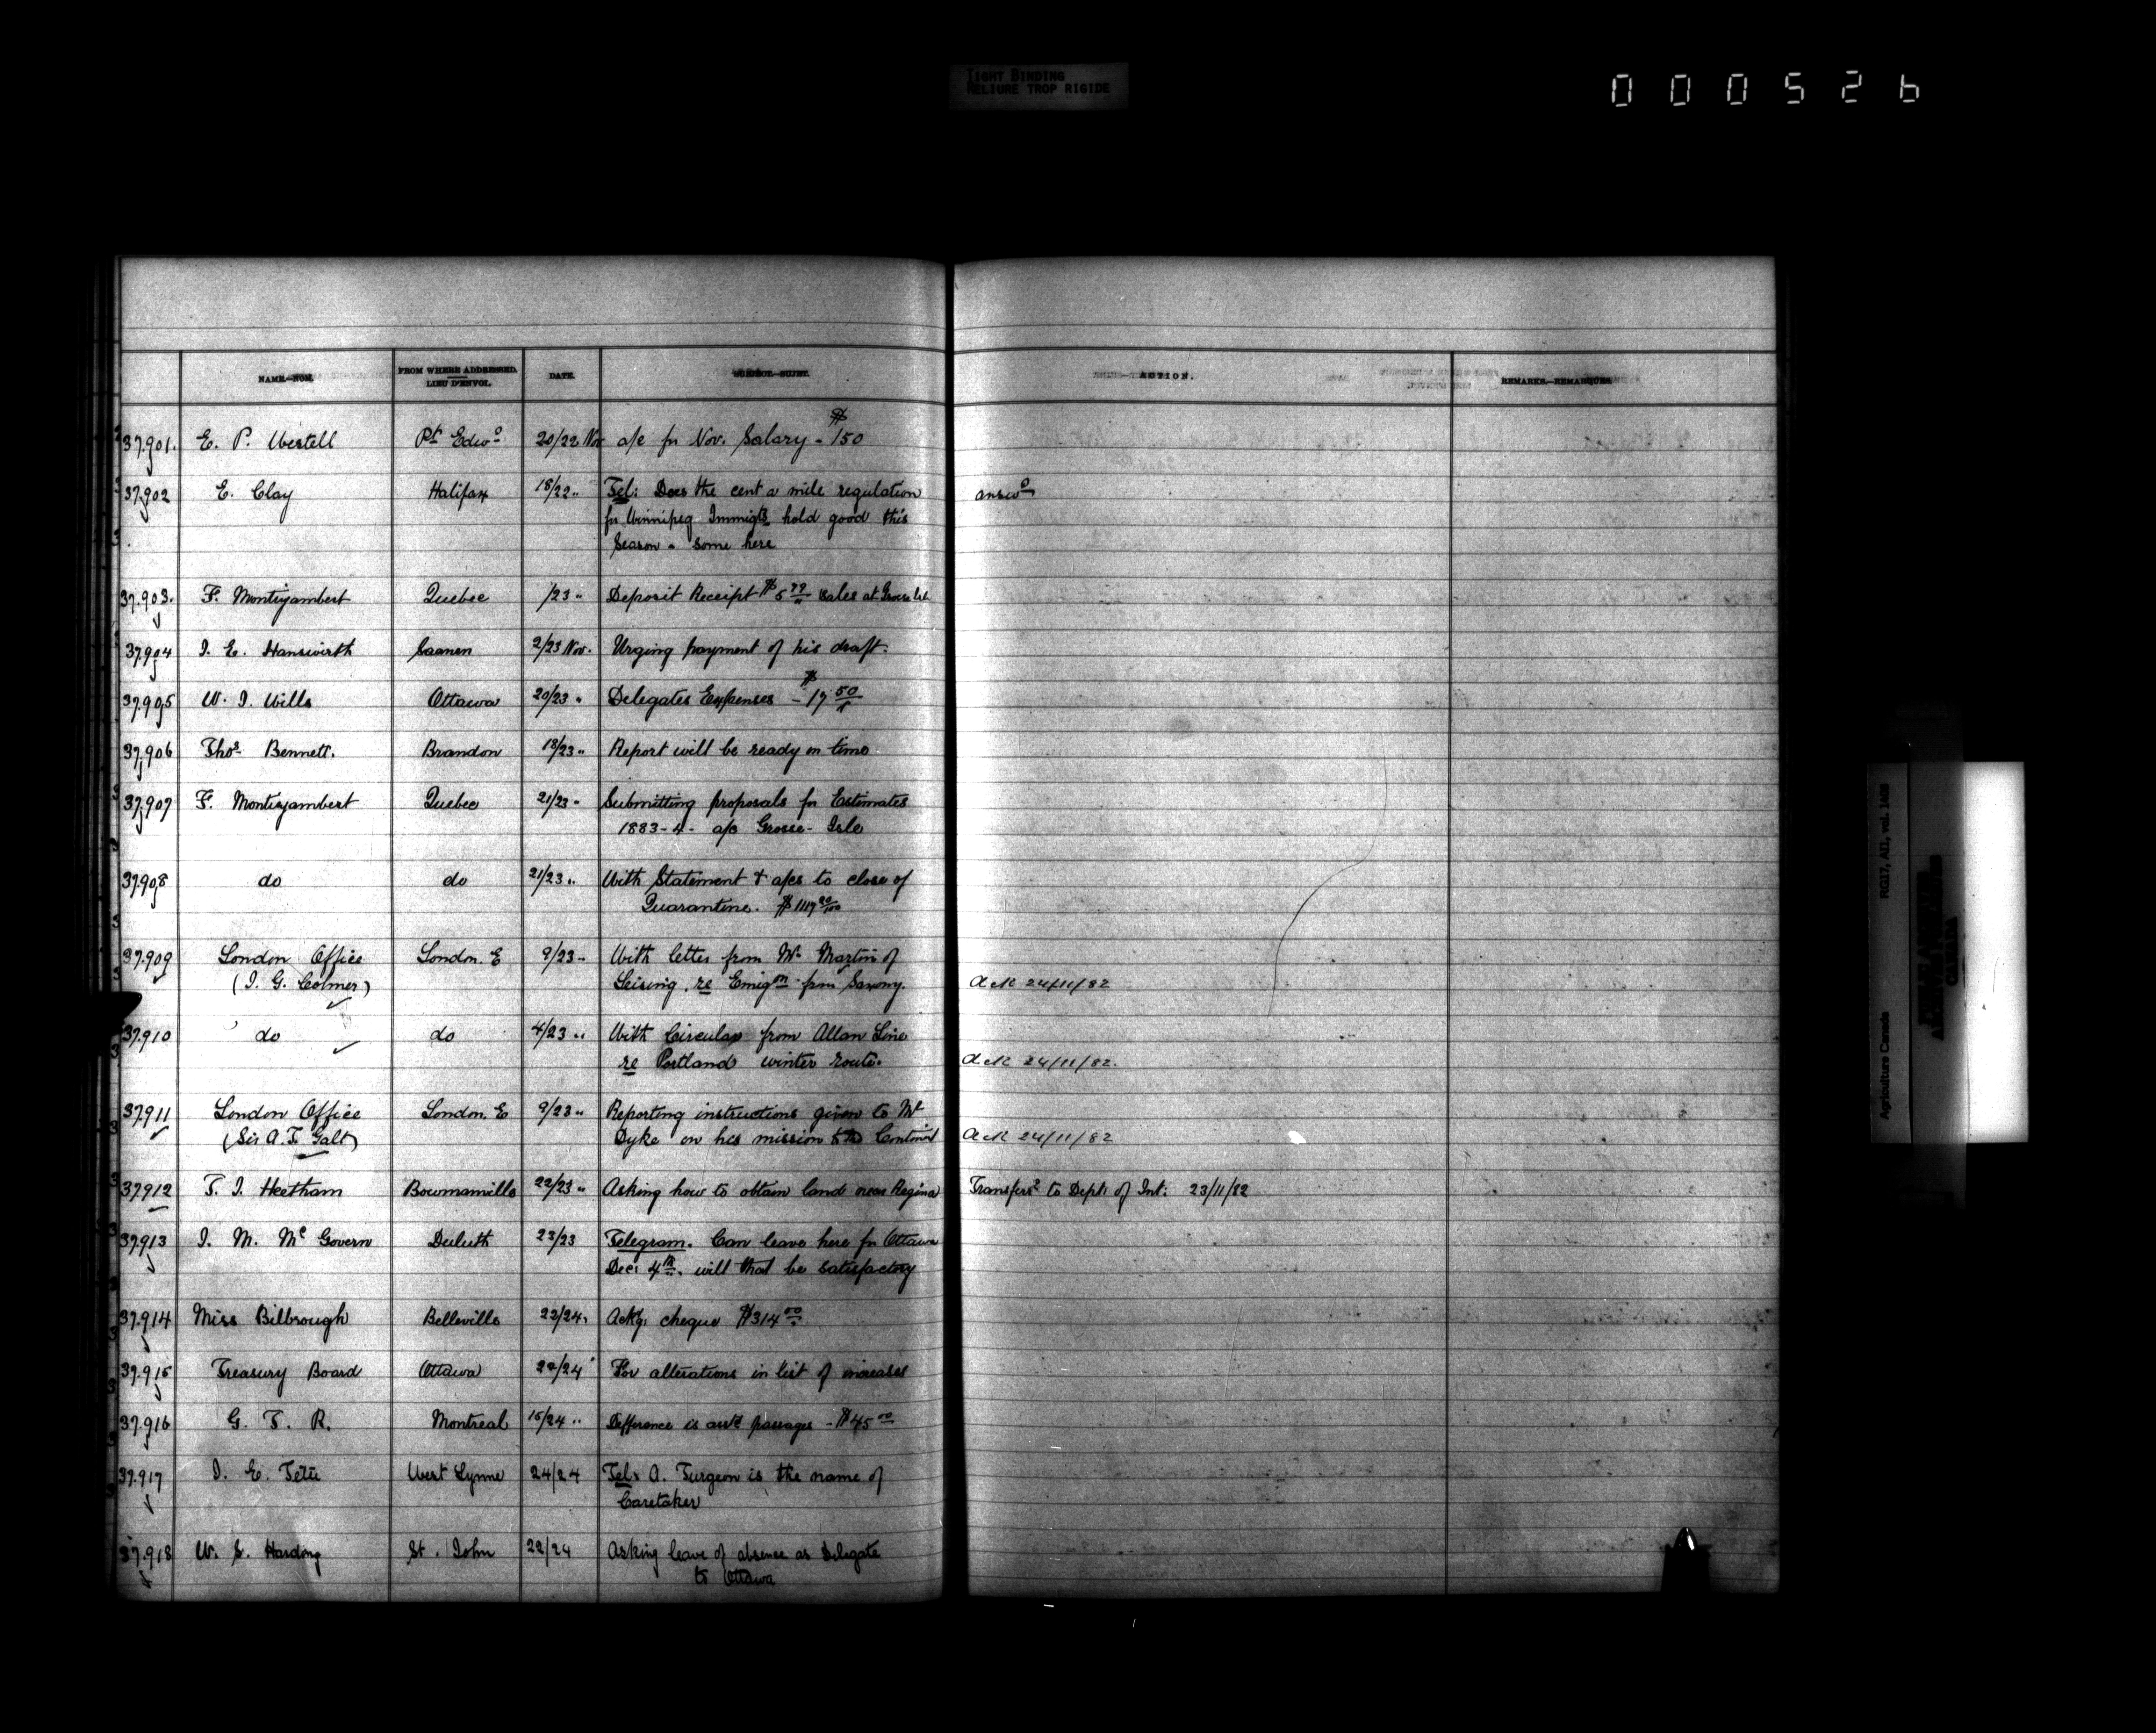 TIGHT BINDING
RELIURE TROP RIGIDE
000526
NAME.—NOM. FROM WHERE ADDRESSED. LIEU D'ENVOI. DATE. SUBJECT.—SUJET. ACTION. REMARKS.—REMARQUES.
37.901. E. P. Westell Pt. Edwd 20/22 Nov a/c for Nov. Salary - $150
37.902 E. Clay Halifax 18/22 " Tel: Does the cent a mile regulation answd
for Winnipeg Immigts hold good this
Season - some here
37.903. F. Montizambert Quebec /23 " Deposit Receipt sales at Grosse Isle
37.904 J. E. Hanswirth Saanen 2/23 Nov. Urging payment of his draft.
37.905 W. J. Wills Ottawa 20/23 " Delegates Expenses - $17 50
37.906 Thos Bennett. Brandon 18/23 " Report will be ready on time
37.907 F. Montizambert Quebec 21/23 " Submitting proposals for Estimates
1883-4 - a/c Grosse-Isle
37.908 do do 21/23 " With Statement & a/cs to close of
Quarantine.
37.909 London Office London. E 9/23 " With letter from Mr. Martin of
(J. G. Colmer) Leising, re Emign from Saxony. Ack 24/11/82
37.910 do do 4/23 " With Circular from Allan Line
re Portland winter route. Ack 24/11/82.
37.911 London Office London. E 9/23 " Reporting instructions given to Mr
(Sir A. T. Galt) Dyke on his mission to the Continent Ack 24/11/82
37.912 T. J. Heetham Bowmanville 22/23 " Asking how to obtain land near Regina Transferd to Dept. of Int: 23/11/82
37.913 J. M. McGovern Duluth 23/23 Telegram. Can leave here for Ottawa
Dec: 4th. will that be satisfactory
37.914 Miss Bilbrough Belleville 22/24 " Ackg. cheque $314 00
37.915 Treasury Board Ottawa 22/24 " For alterations in list of increases
37.916 G. T. R. Montreal 15/24 " Difference is asstd passages - $45 00
37.917 J. E. Tetu West Lynne 24/24 Tel: A. Turgeon is the name of
Caretaker
37.918 W. S. Harding St. John 22/24 Asking leave of absence as Delegate
to Ottawa
Agriculture Canada RG17, AII, vol. 1608